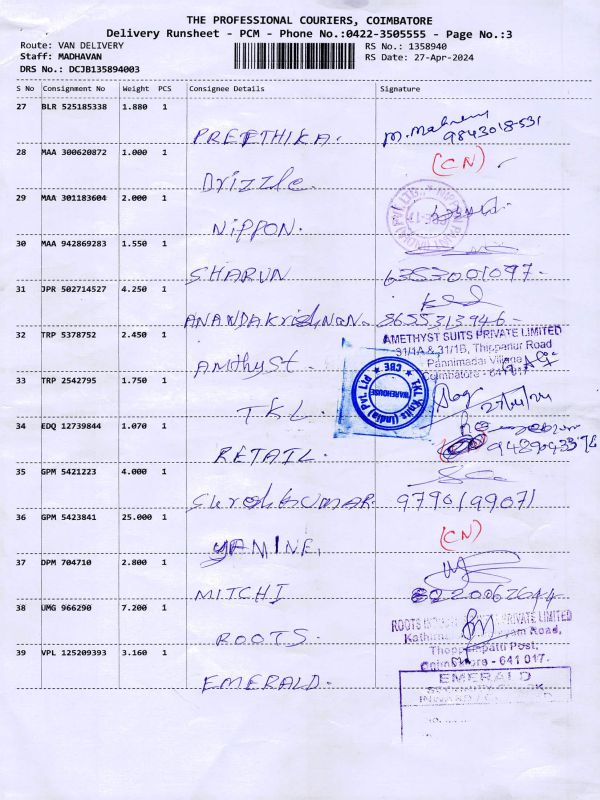 THE PROFESSIONAL COURIERS, COIMBATORE
Delivery Runsheet - PCM - Phone No.:0422-3505555 - Page No.:3
Route: VAN DELIVERY RS No.: 1358940
Staff: MADHAVAN RS Date: 27-Apr-2024
DRS No.: DCJB135894003
S No Consignment No Weight PCS Consignee Details Signature
27 BLR 525185338 1.880 1
PREETHIKA. 9843018531
28 MAA 300620872 1.000 1 (CN)
Drizzle.
29 MAA 301183604 2.000 1
NIPPON.
30 MAA 942869283 1.550 1
SHARUN 6353001097-
31 JPR 502714527 4.250 1
ANANDAKrishNaN. 8655313946-
32 TRP 5378752 2.450 1 AMETHYST SUITS PRIVATE LIMITED
31/1A & 31/1B, Thippanur Road
Pannimadai Village
Amthyst. Coimbatore - 641017.
33 TRP 2542795 1.750 1
TKL Knits (India) Pvt. Ltd.
WAREHOUSE
CBE
TKL. 27/4/24
34 EDQ 12739844 1.070 1
RETAIL.
35 GPM 5421223 4.000 1
Sureshkumar. 9790199071
36 GPM 5423841 25.000 1 (CN)
YAMINE.
37 DPM 704710 2.800 1
MITCHI 8220062644-
38 UMG 966290 7.200 1 ROOTS PRIVATE LIMITED
Road,
Thoppampatti Post;
ROOTS. Coimbatore - 641 017.
39 VPL 125209393 3.160 1
EMERALD
EMERALD. SECURITY CHECK